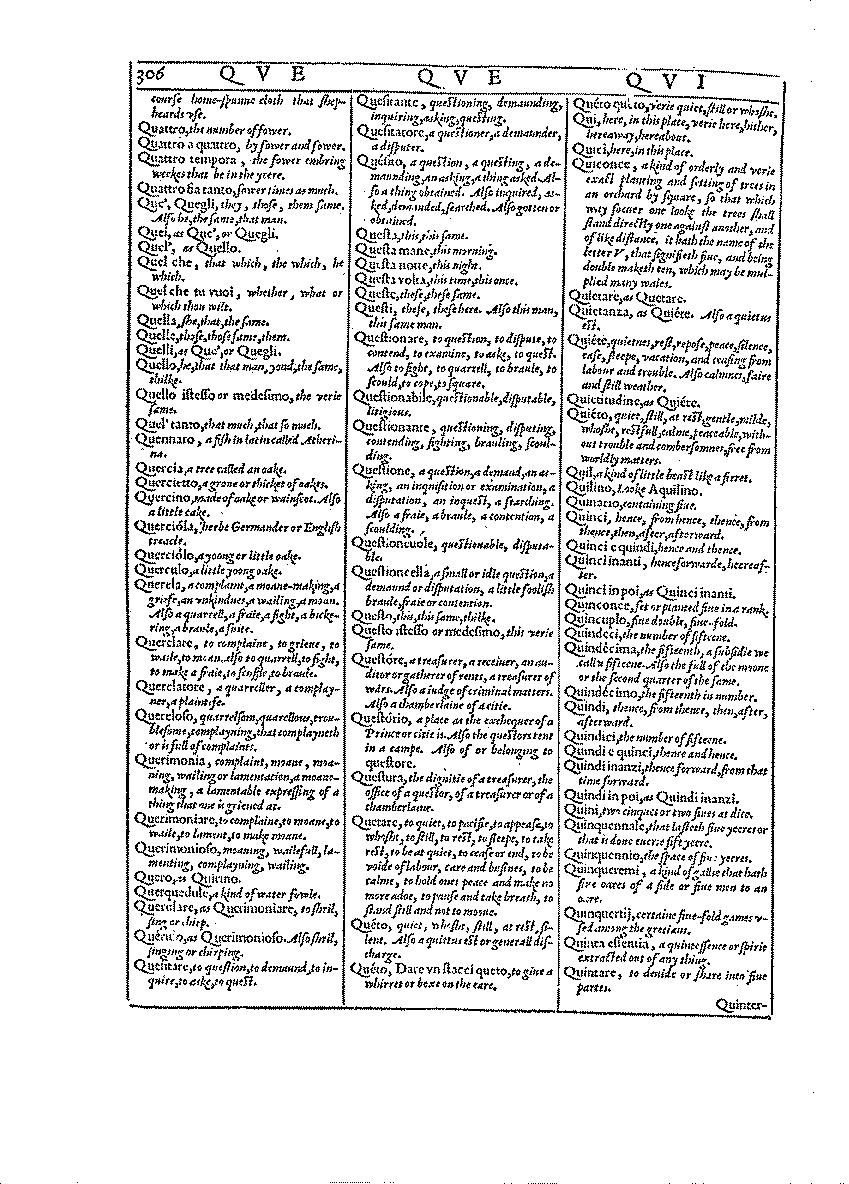 306 QVE QVE QVI
course home-spunne cloth that shep-
heards vse.
Quattro, the number of fower.
Quattro a quattro, by fower and fower.
Quattro tempora, the fower embring
weekes that be in the yeere.
Quattro fia tanto, fower times as much.
Que', Quegli, they, those, them same.
Also he, the same, that man.
Quei, as Que', or Quegli.
Quel', as Quello.
Quel che, that which, the which, he
which.
Quel che tu vuoi, whether, what or
which thou wilt.
Quella, she, that, the same.
Quelle, those, those same, them.
Quelli, as Que', or Quegli.
Quello, he, that that man, yond, the same,
thilke.
Quello istesso or medesimo, the verie
same.
Quel' tanto, that much, that so much.
Quennaro, a fish in latin called Atheri-
na.
Quercia, a tree called an oake.
Quercietto, a groue or thicket of oakes.
Quercino, made of oake or wainscot. Also
a little cake.
Quercióla, herbe Germander or English
treacle.
Querciólo, a yoong or little oake.
Querculo, a little yoong oake.
Querela, a complaint, a moane-making, a
griefe, an vnkindnes, a wailing, a moan.
Also a quarrell, a fraie, a fight, a bicke-
ring, a braule, a suite.
Querelare, to complaine, to grieue, to
waile, to moan. Also to quarrell, to fight,
to make a fraie, to scuffle, to braule.
Querelatore, a quareller, a complay-
ner, a plaintife.
Quereloso, quarrelsom, quarellous, trou-
blesome, complayning, that complayneth
or is full of complaints.
Querimonia, complaint, mone, moa-
ning, wailing or lamentation, a moane-
making, a lamentable expressing of a
thing that one is grieued at.
Querimoniare, to complaine, to moane, to
waile, to lament, to make moane.
Querimonioso, moaning, wailefull, la-
menting, complayning, wailing.
Quero, as Quicino.
Querquedule, a kind of water fowle.
Querelare, as Querimoniare, to shril,
sing or chirp.
as Querimonioso. Also shril,
singing or chirping.
Quesitare, to question, to demaund, to in-
quire, to aske, to quest.
Quesitante, questioning, demaunding,
inquiring, asking, questing.
Quesitatore, a questioner, a demaunder,
a disputer.
Quesito, a question, a questing, a de-
maunding, an asking, a thing asked. Al-
so a thing obtained. Also inquired, as-
ked, demanded, searched. Also gotten or
obtained.
Questa, this, this same.
Questa mane, this morning.
Questa notte, this night.
Questa volta, this time, this once.
Queste, these, these same.
Questi, these, these here. Also this man,
this same man.
Questionare, to question, to dispute, to
contend, to examine, to aske, to quest.
Also to fight, to quarrell, to braule, to
scould, to cope, to square.
Questionabile, questionable, disputable,
litigious.
Questionante, questioning, disputing,
contending, fighting, brauling, scoul-
ding.
Questione, a question, a demand, an as-
king, an inquisition or examination, a
disputation, an inquest, a searching.
Also a fraie, a braule, a contention, a
scoulding.
Questioneuole, questionable, disputa-
ble.
Questioncella, a small or idle question, a
demaund or disputation, a little foolish
braule, fraie or contention.
Questo, this, this same, thilke.
Questo istesso or medesimo, this verie
same.
Questóre, a treasurer, a receiuer, an au-
ditor or gatherer of rents, a treasurer of
wars. Also a iudge of criminal matters.
Also a chamberlaine of a citie.
Questório, a place as the exchequer of a
Prince or citie is. Also the questors tent
in a campe. Also of or belonging to
questore.
Questura, the dignitie of a treasurer, the
office of a questor, of a treasurer or of a
chamberlaine.
Quetare, to quiet, to pacifie, to appease, to
whosht, to still, to rest, to sleepe, to take
rest, to be at quiet, to cease or end, to be
voide of labour, care and busines, to be
calme, to hold ones peace and make no
more adoe, to pause and take breath, to
stand still and not to moue.
Quéto, quiet, whosht, still, at rest, si-
lent. Also a quittus est or generall dis-
charge.
Quéto, Dare vn stacci queto, to giue a
whirret or boxe on the eare.
Quéto quéto, verie quiet, still or whosht.
Qui, here, in this place, verie here, hither,
hereaway, hereabout.
Quici, here, in this place.
Quiconce, a kind of orderly and verie
exact planting and setting of trees in
an orchard by square, so that which
way soeuer one looke the trees shall
stand directly one against another, and
of like distance, it hath the name of the
letter V, that signifieth fiue, and being
double maketh ten, which may be mul-
plied many waies.
Quietare, as Quetare.
Quietanza, as Quiéte. Also a quietus
est.
Quiéte, quietnes, rest, repose, peace, silence,
ease, sleepe, vacation, and ceasing from
labour and trouble. Also calmnes, faire
and still weather.
Quietitudine, as Quiéte.
Quiéto, quiet, still, at rest, gentle, milde,
whosht, restfull, calme, peaceable, with-
out trouble and combersomnes, free from
worldly matters.
Quil, a kind of little beast like a firret.
Quilino, Looke Aquilino.
Quinario, containing fiue.
Quinci, hence, from hence, thence, from
thence, then, after, afterward.
Quinci e quindi, hence and thence.
Quinci inanti, henceforwarde, hereaf-
ter.
Quinci in poi, as Quinci inanti.
Quinconce, set or planted fiue in a ranke
Quincuplo, fiue double, fiue-fold.
Quindeci, the number of fifteene.
Quindécima, the fifteenth, a subsidie we
call a fifteene. Also the full of the moone
or the second quarter of the same.
Quindécimo, the fifteenth in number.
Quindi, thence, from thence, then, after,
afterward.
Quindici, the number of fifteene.
Quindi e quinci, thence and hence.
Quindi inanzi, thence forward, from that
time forward.
Quindi in poi, as Quindi inanzi.
Quini, two cinques or two fiues at dice.
Quinquennale, that lasteth fiue yeeres or
that is done euerie fift yeere.
Quinquennio, the space of fiue yeeres.
Quinqueremi, a kind of gallie that hath
fiue oares of a side or fiue men to an
oare.
Quinquertij, certaine fiue-fold games v-
sed among the grecians.
Quinta essentia, a quintessence or spirit
extracted out of any thing.
Quintare, to deuide or share into fiue
partes.
Quinter-